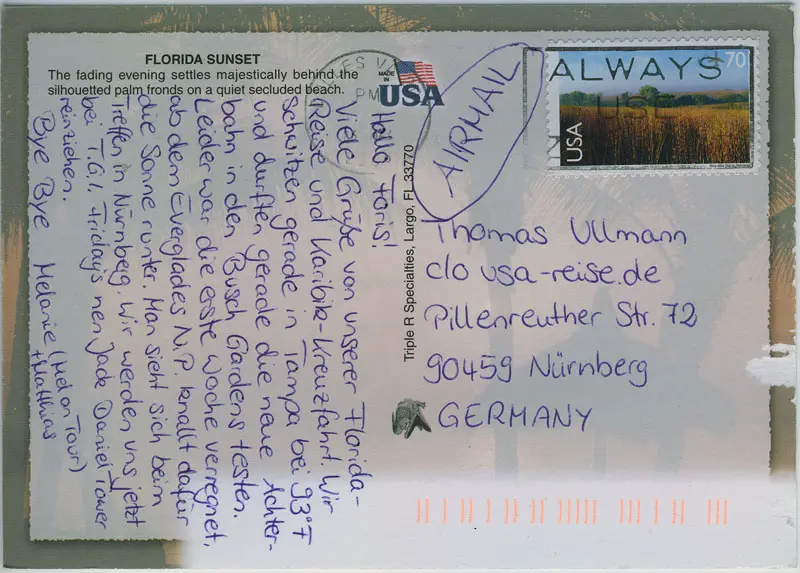 FLORIDA SUNSET
The fading evening settles majestically behind the
silhouetted palm fronds on a quiet secluded beach.
MADE IN
USA
PM
AIRMAIL
ALWAYS
USE
70
USA
Triple R Specialties, Largo, FL 33770
Hallo Foris!
Viele Grüße von unserer Florida-
Reise und Karibik-Kreuzfahrt. Wir
schwitzen gerade in Tampa bei 93°F
und durften gerade die neue Achter-
bahn in den Busch Gardens testen.
Leider war die erste Woche verregnet,
ab dem Everglades N.P. knallt dafür
die Sonne runter. Man sieht sich beim
Treffen in Nürnberg. Wir werden uns jetzt
bei T.G.I. Friday's nen Jack Daniel Tower
reinziehen.
Bye Bye Melanie (Mel on Tour)
+ Matthias
Thomas Ullmann
c/o usa-reise.de
Pillenreuther Str. 72
90459 Nürnberg
GERMANY